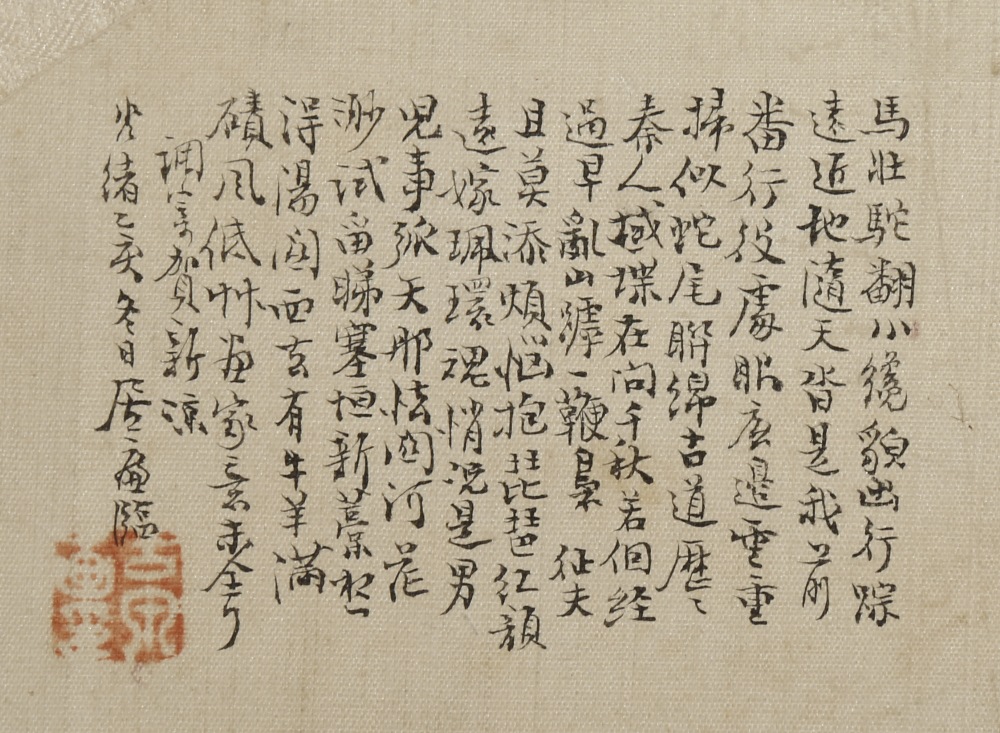 馬壯駝翻小纔貌出行踪
遠近地隨天沓是我前
番行役處眼底邊雲重
掃似蛇尾聨綿古道歷〻
秦人堞在問千秋若個經
過早亂山罅一鞭裊征夫
且莫添煩惱抱琵琶紅顔
遠嫁珮環魂悄况是男
兒事弧天那怯關河茫
渺試面睇塞垣新藁
得湯關西去有牛羊滿
磧風低艸畫家意未全了
調寄賀新涼
光緒乙亥冬日居廉臨